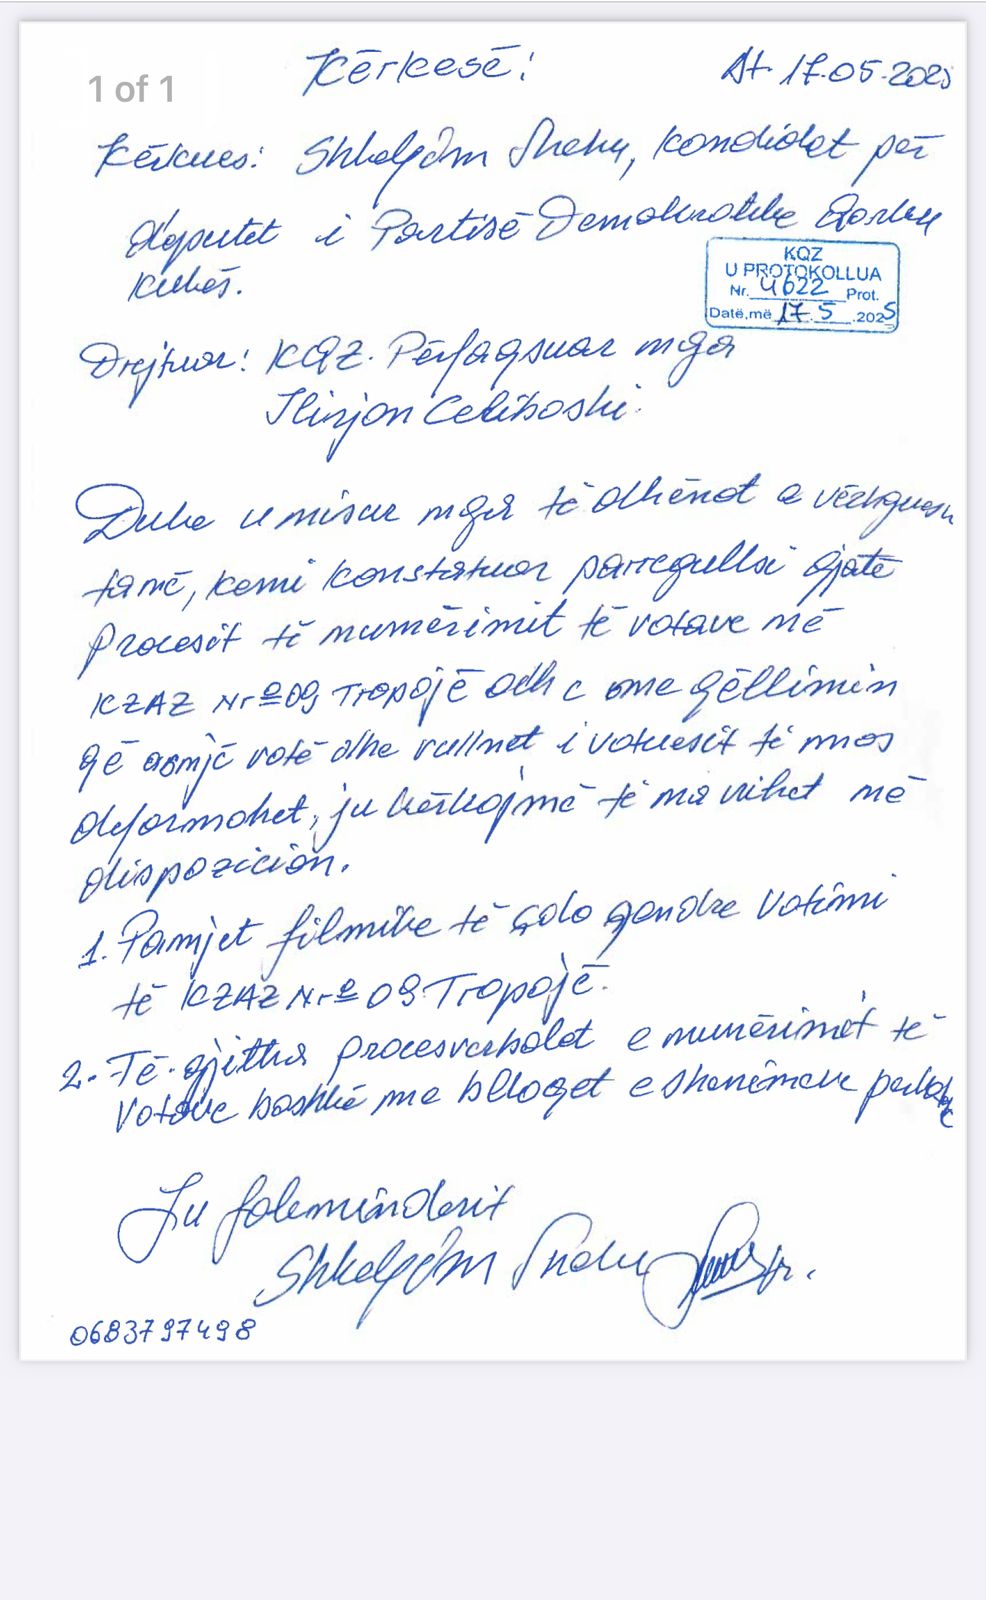 1 of 1
Kërkesë:
Dt. 17.05.2025
Kërkues: Shkelqim Shehu, kandidat për
deputet i Partisë Demokratike Qarku
Kukës.
KQZ
U PROTOKOLLUA
Nr. 4622 Prot.
Datë, më 17.5.2025
Drejtuar: KQZ. Përfaqsuar nga
Ilirjan Celibashi.
Duke u nisur nga të dhënat e vëzhguesve
tanë, kemi konstatuar parregullsi gjatë
Procesit të numërimit të votave në
KZAZ Nr º09, Tropojë dhe me qëllimin
që asnjë votë dhe vullnet i votuesit të mos
deformohet, ju kërkojmë të na vihet në
dispozicion.
1. Pamjet filmike të çdo qendre votimi
të KZAZ Nr º 09 Tropojë.
2. Të gjitha procesverbalet e numërimit të
Votave bashkë me blloqet e shënimeve
Ju faleminderit
Shkelqim Shehu
0683797498